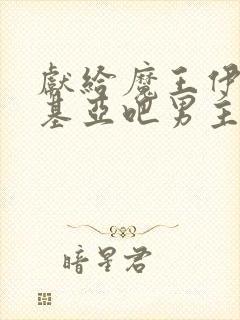 獻給魔王伊
基亞吧男主
暗星君